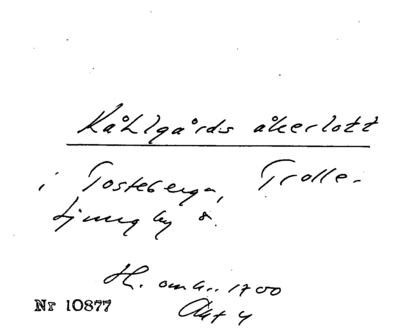 Kåhlgårds åkerlott
i Tosteberga, Trolle-
Ljungby s.
H. omkr. 1700
Nr 10877 Akt 4